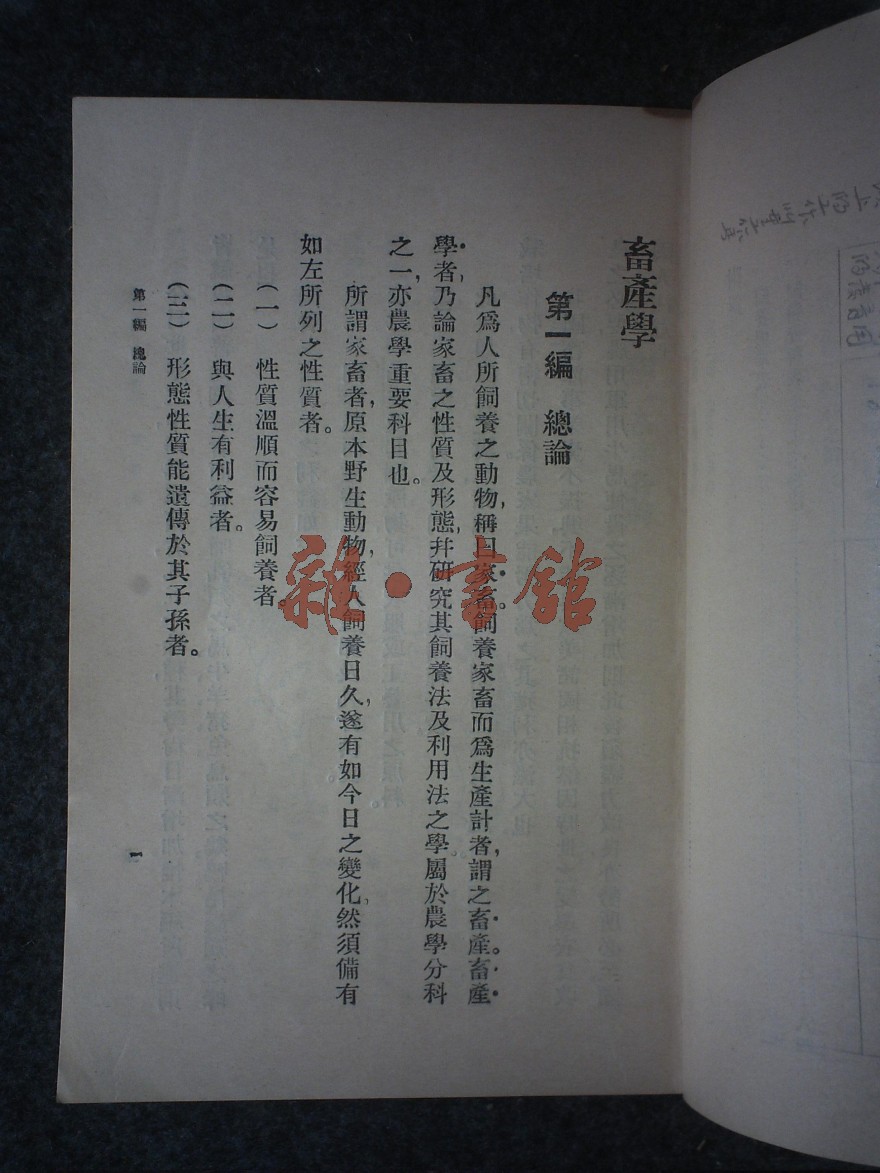 畜產學
第一編　總論
凡爲人所飼養之動物，稱曰家畜。飼養家畜而爲生產計者，謂之畜產。畜產
學者，乃論家畜之性質及形態，幷研究其飼養法及利用法之學。屬於農學分科
之一，亦農學重要科目也。
所謂家畜者，原本野生動物，經人飼養日久，遂有如今日之變化，然須備有
如左所列之性質者。
（一）　性質溫順而容易飼養者。
（二）　與人生有利益者。
（三）　形態性質能遺傳於其子孫者。
第一編　總論
一
雜·書館